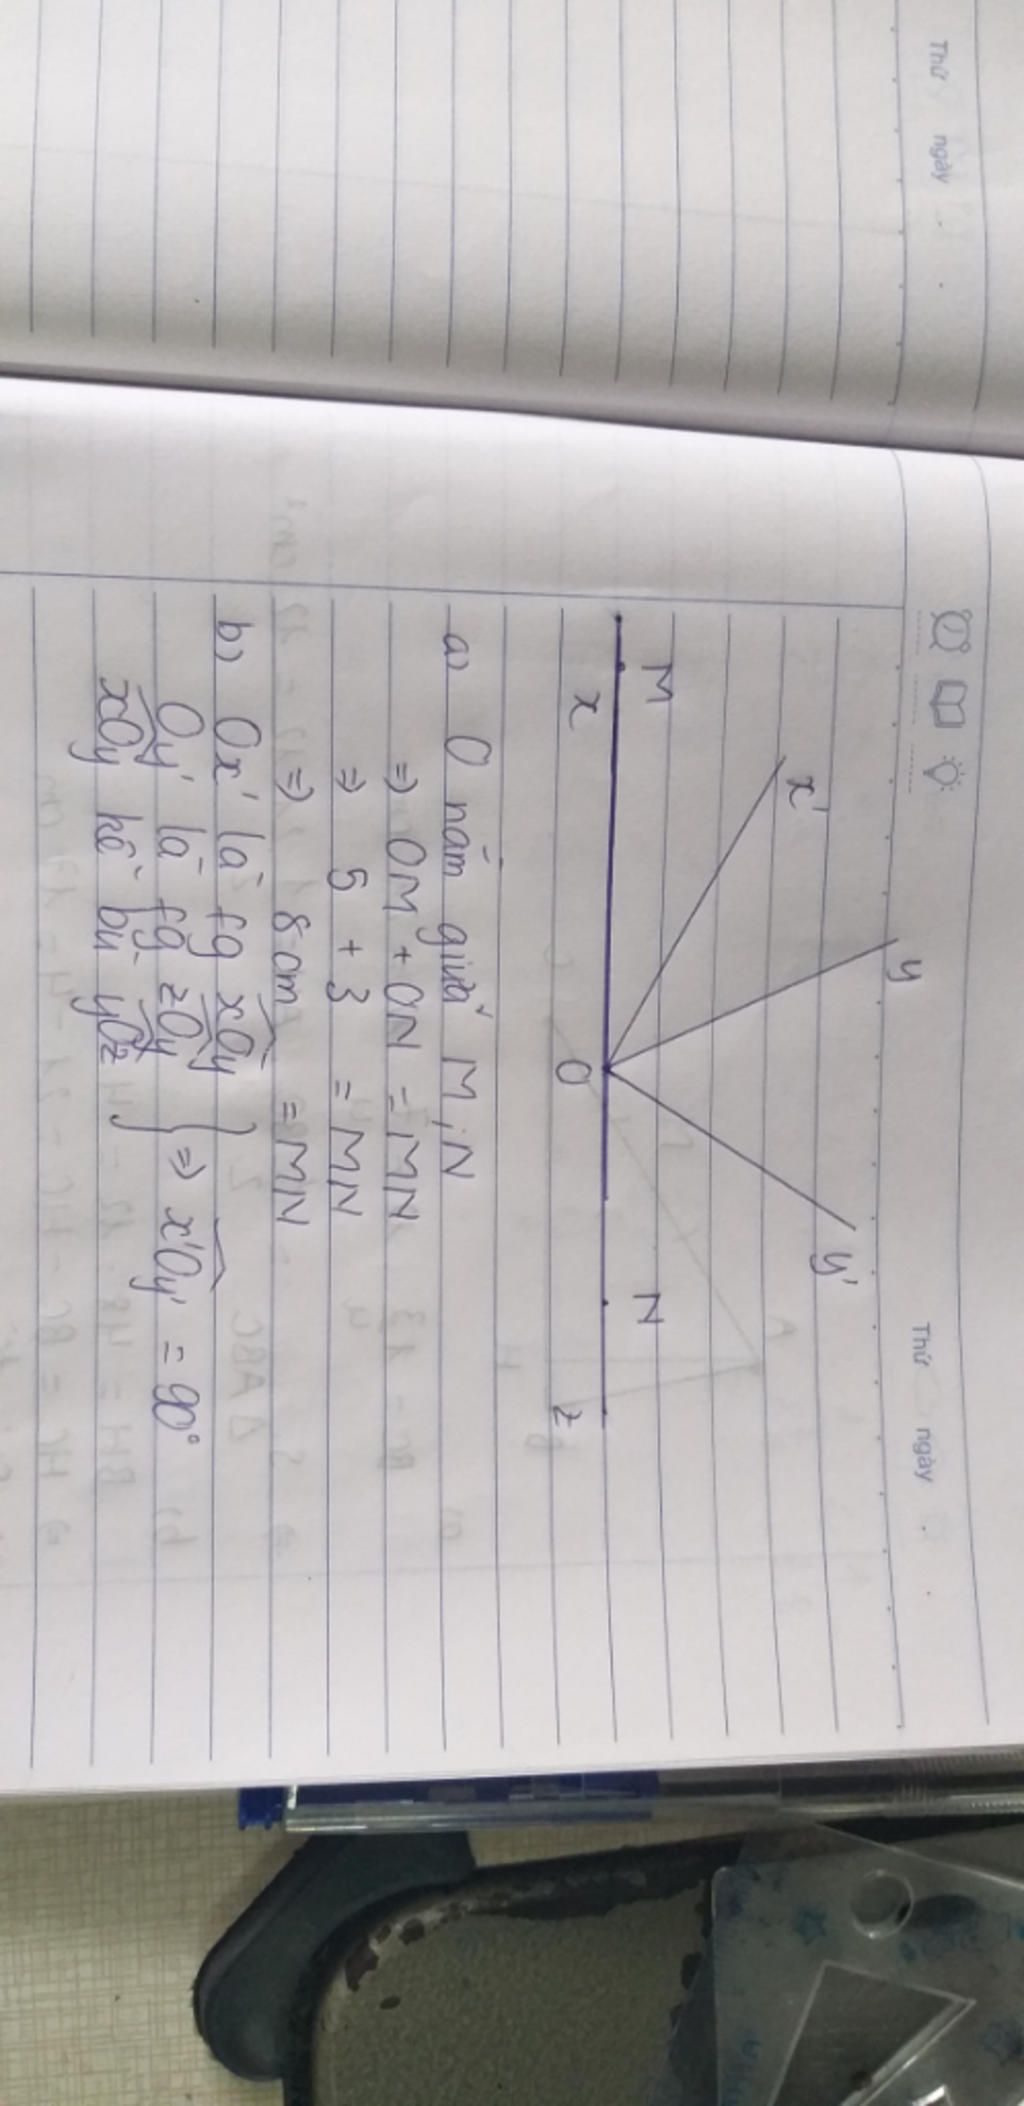 Thứ ngày
Thứ ngày
y
x' y'
M N
x O z
a) O nằm giữa M, N
=> OM + ON = MN
=> 5 + 3 = MN
=> 8 cm = MN
b) Ox' là fg xOy
Oy' là fg zOy => x'Oy' = 90°
xOy kề bù yOz